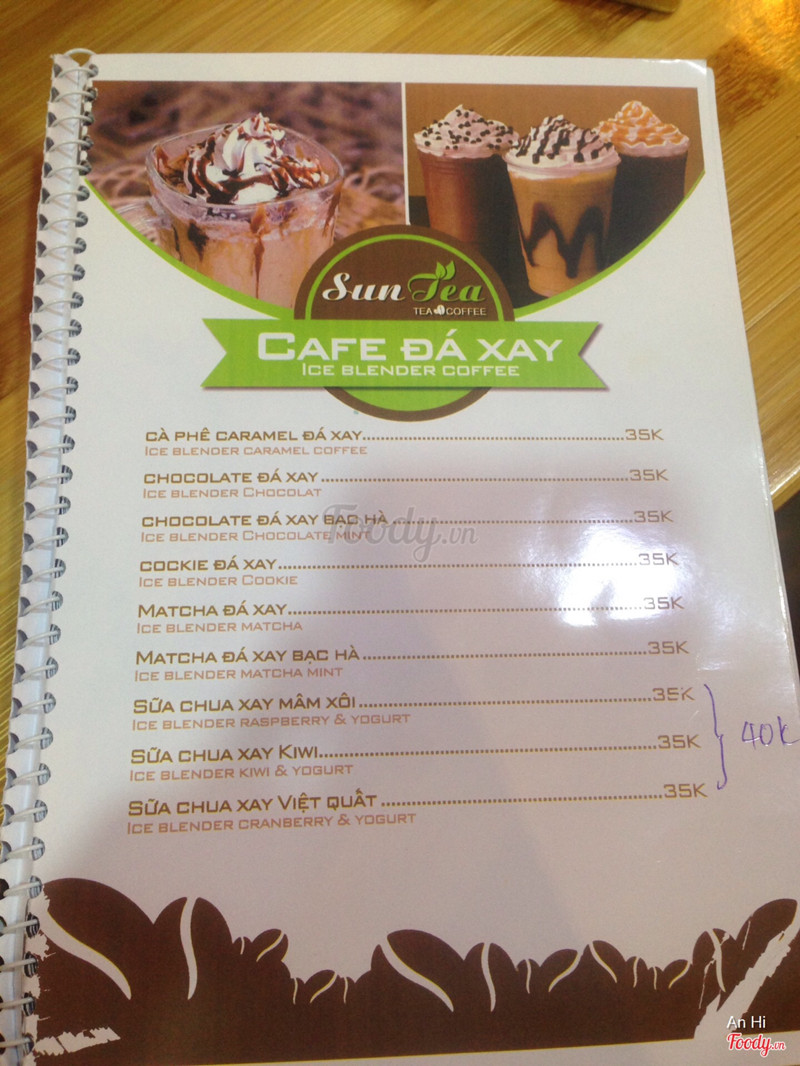 Sun Tea
TEA COFFEE
CAFE ĐÁ XAY
ICE BLENDER COFFEE
CÀ PHÊ CARAMEL ĐÁ XAY.................35K
ICE BLENDER CARAMEL COFFEE
CHOCOLATE ĐÁ XAY.................35K
ICE BLENDER CHOCOLAT
CHOCOLATE ĐÁ XAY BẠC HÀ.................35K
ICE BLENDER CHOCOLATE MINT
Foody.vn
COCKIE ĐÁ XAY.................35K
ICE BLENDER COOKIE
MATCHA ĐÁ XAY.................35K
ICE BLENDER MATCHA
MATCHA ĐÁ XAY BẠC HÀ.................35K
ICE BLENDER MATCHA MINT
SỮA CHUA XAY MÂM XÔI.................35K
ICE BLENDER RASPBERRY & YOGURT
SỮA CHUA XAY KIWI.................35K
40K
ICE BLENDER KIWI & YOGURT
SỮA CHUA XAY VIỆT QUẤT.................35K
ICE BLENDER CRANBERRY & YOGURT
An Hi
Foody.vn